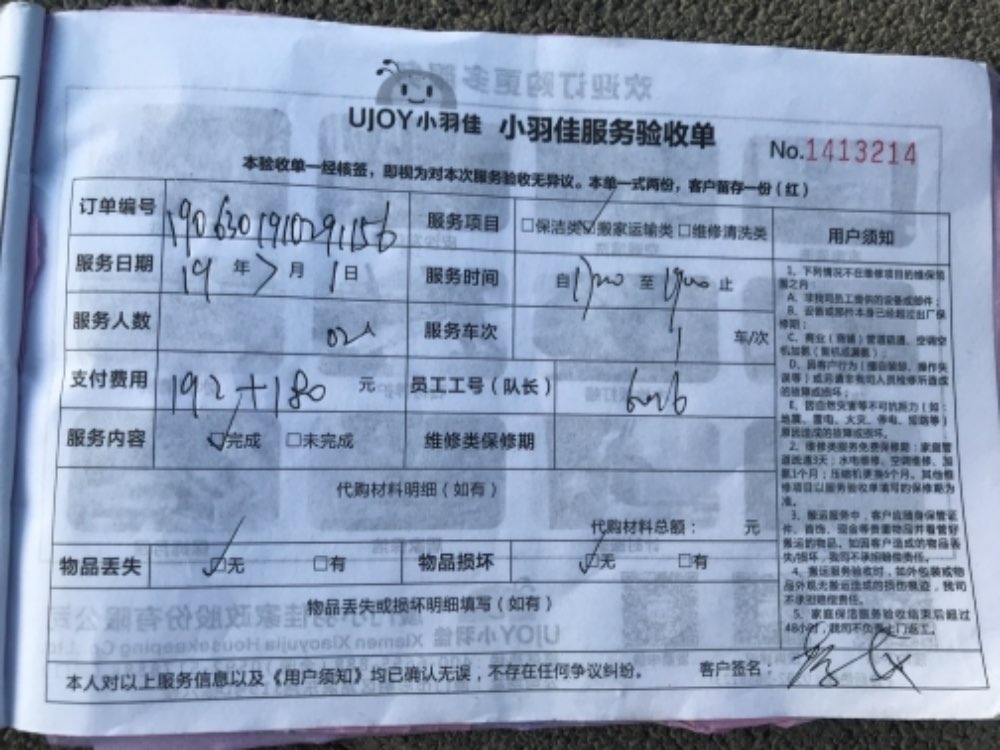 UJOY小羽佳 小羽佳服务验收单
No.1413214
本验收单一经核签，即视为对本次服务验收无异议。本单一式两份，客户留存一份（红）
订单编号 1906301910291156 服务项目 □保洁类 ☑搬家运输类 □维修清洗类 用户须知
服务日期 19年7月1日 服务时间 自1700至1900止
服务人数 02人 服务车次 1 车/次
支付费用 192+180 元 员工工号（队长） 6026
服务内容 ☑完成 □未完成 维修类保修期
代购材料明细（如有）
代购材料总额： 元
物品丢失 ☑无 □有 物品损坏 ☑无 □有
物品丢失或损坏明细填写（如有）
本人对以上服务信息以及《用户须知》均已确认无误，不存在任何争议纠纷。 客户签名：
1、下列情况不在维修项目的维保范
围之内：
A、非我司员工提供的设备或部件；
B、设备或部件本身已经超过出厂保
修期；
C、商业（商铺）管道疏通、空调空
机加氨（氟机或漏氨）；
D、因客户行为（擅自装卸、操作失
误等）或非我司人员检修所造成
的故障或损坏；
E、因自然灾害等不可抗力（如：
地震、雷电、火灾、停电、短路等）
原因造成的故障或损坏。
2、维修类服务免费保修期：家庭管
道疏通3天；水电维修、空调维修、加
氨1个月；压缩机更换6个月。其他维
修项目以服务验收单填写的保修期为
准。
3、搬运服务中，客户应随身保管证
件、首饰、现金等贵重物品并看管好
搬运的物品，如因客户造成的物品丢
失/损坏，我司不承担赔偿责任。
4、搬运服务验收时，如外包装或物
品外观无搬运造成的损伤痕迹，我司
不承担赔偿责任。
5、家庭保洁服务验收结束后超过
48小时，我司不负责上门返工。